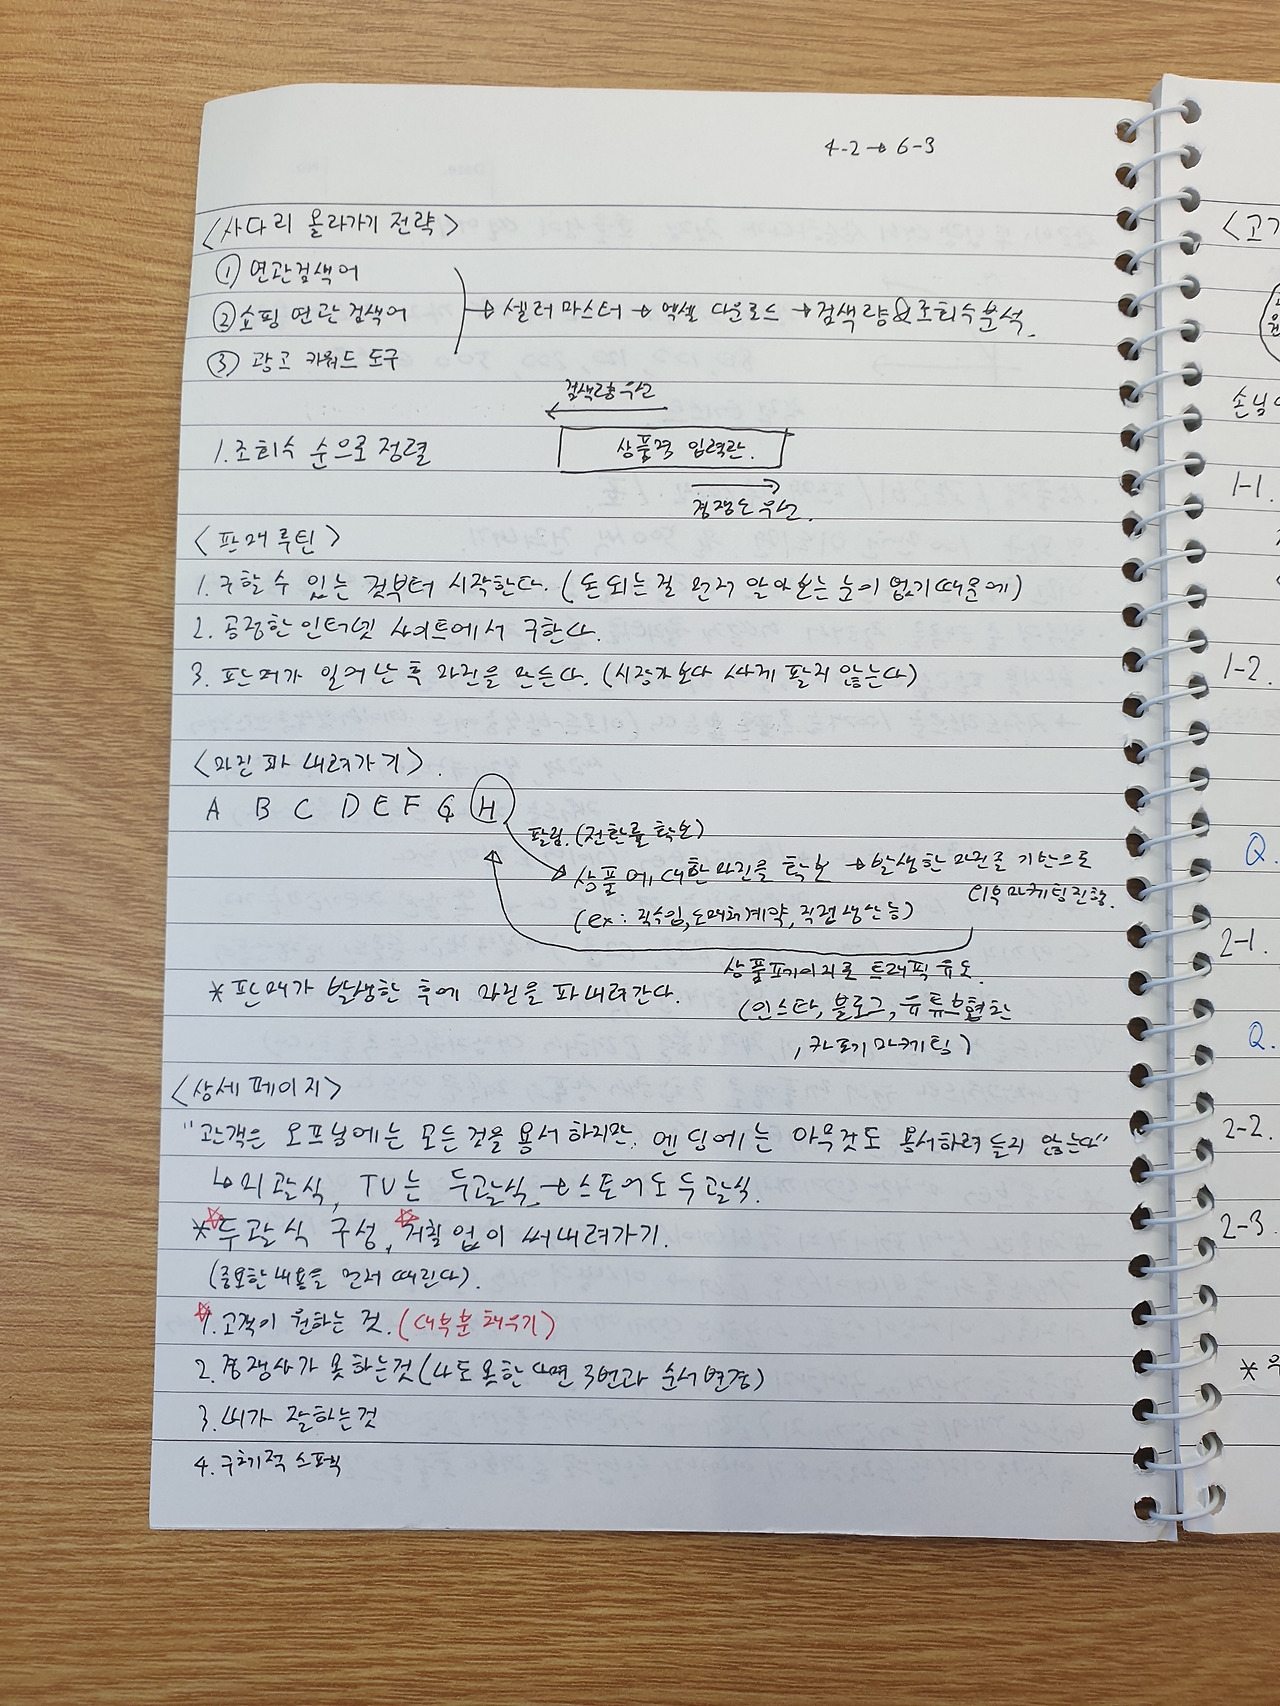 4-2 → 6-3
<사다리 올라가기 전략>
① 연관검색어
② 쇼핑 연관 검색어
③ 광고 키워드 도구
→ 셀러 마스터 → 엑셀 다운로드 → 검색량&조회수분석.
검색량 우선
1. 조회수 순으로 정렬
상품명 입력란.
경쟁도 우선.
<판매 루틴>
1. 구할 수 있는 것부터 시작한다. (돈 되는 걸 먼저 알아보는 눈이 없기 때문에)
2. 공정한 인터넷 사이트에서 구한다.
3. 판매가 일어난 후 마진을 만든다. (시장가보다 싸게 팔지 않는다)
<마진 파 내려가기>.
A B C D E F G H
팔림. (전환률 확보)
상품에 대한 마진을 확보 → 발생한 마진을 기반으로
(ex: 직수입, 도매처계약, 직접생산 등)
마케팅진행.
상품페이지로 트래픽 유도.
* 판매가 발생한 후에 마진을 파내려간다.
(인스타, 블로그, 유튜브협찬
, 카페마케팅)
<상세페이지>
"관객은 오프닝에는 모든 것을 용서하지만, 엔딩에는 아무것도 용서하려 들지 않는다"
↳ 미괄식, TV는 두괄식 → 스토어도 두괄식.
* 두괄식 구성, 거침없이 써내려가기.
(중요한 내용을 먼저 때린다).
1. 고객이 원하는 것. (대부분 채우기)
2. 경쟁사가 못하는것 (나도 못한다면 3번과 순서변경)
3. 내가 잘하는것
4. 구체적 스펙
<고
손님
1-1.
1-2.
Q.
2-1.
Q.
2-2.
2-3.
*